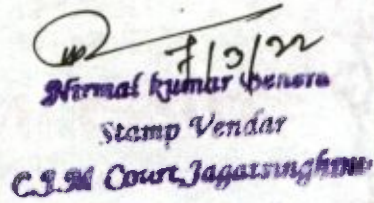 7/3/22
Nirmal kumar Benera
Stamp Vendar
C.J.M Court, Jagatsinghpur